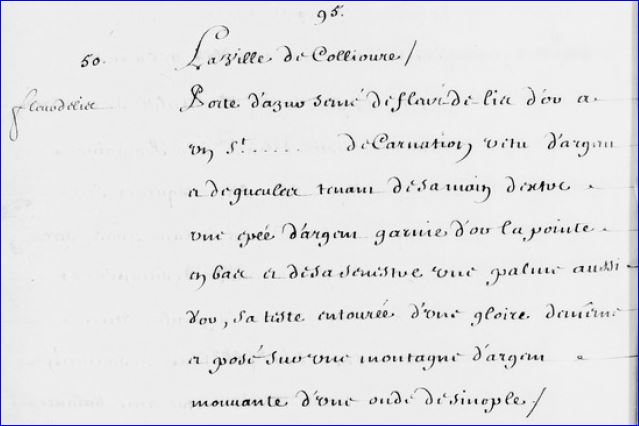 95.
50. La Ville de Collioure /
fleurdelisé Porte d'azur semé de fleur de lis d'or a
un St. ..... de Carnation vetu d'argent
et de gueules tenant de sa main dextre
une epée d'argent garnie d'or la pointe
en bas et de sa senestre une palme aussi
d'or, sa teste entourée d'une gloire de même
et posé sur une montagne d'argent
mouvante d'une onde de sinople /